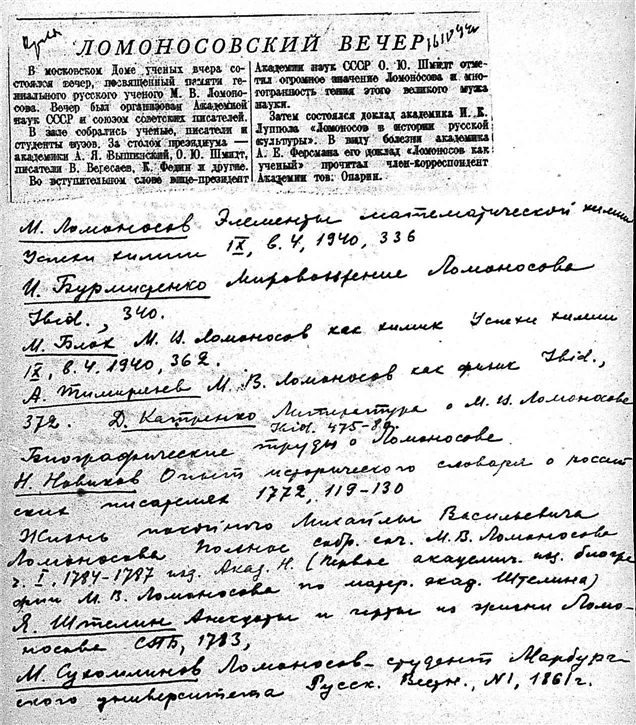 ЛОМОНОСОВСКИЙ ВЕЧЕР
В московском Доме ученых вчера со-
стоялся вечер, посвященный памяти ге-
ниального русского ученого М. В. Ломоно-
сова. Вечер был организован Академией
наук СССР и союзом советских писателей.
В зале собрались ученые, писатели и
студенты вузов. За столом президиума —
академики А. Я. Вышинский, О. Ю. Шмидт,
писатели В. Вересаев, К. Федин и другие.
Во вступительном слове вице-президент
Академии наук СССР О. Ю. Шмидт отме-
тил огромное значение Ломоносова и мно-
гогранность гения этого великого мужа
науки.
Затем состоялся доклад академика И. К.
Луппола «Ломоносов в истории русской
культуры». В виду болезни академика
А. Е. Ферсмана его доклад «Ломоносов как
ученый» прочитал член-корреспондент
Академии тов. Опарин.
М. Ломоносов Элементы математической химии
Успехи химии IX, в. 4, 1940, 336
И. Бурмистенко Мировоззрение Ломоносова
Ibid., 340.
М. Блох М. В. Ломоносов как химик Успехи химии
IX, в. 4. 1940, 362.
А. Тимирязев М. В. Ломоносов как физик Ibid.,
372. Д. Катренко Литература о М. В. Ломоносове
Ibid. 475-89.
Биографические труды о Ломоносове.
Н. Новиков Опыт исторического словаря о россий-
ских писателях 1772, 119-130
Жизнь покойного Михайлы Васильевича
Ломоносова Полное собр. соч. М. В. Ломоносова
ч. I, 1784-1787 изд. Акад. Н. (Первое академич. изд. биогра-
фии М. В. Ломоносова по матер. акад. Штелина)
Я. Штелин Анекдоты и черты из жизни Ломо-
носова СПБ, 1783,
М. Сухомлинов Ломоносов - студент Марбург-
ского университета Русск. Вестн., N1, 1861г.